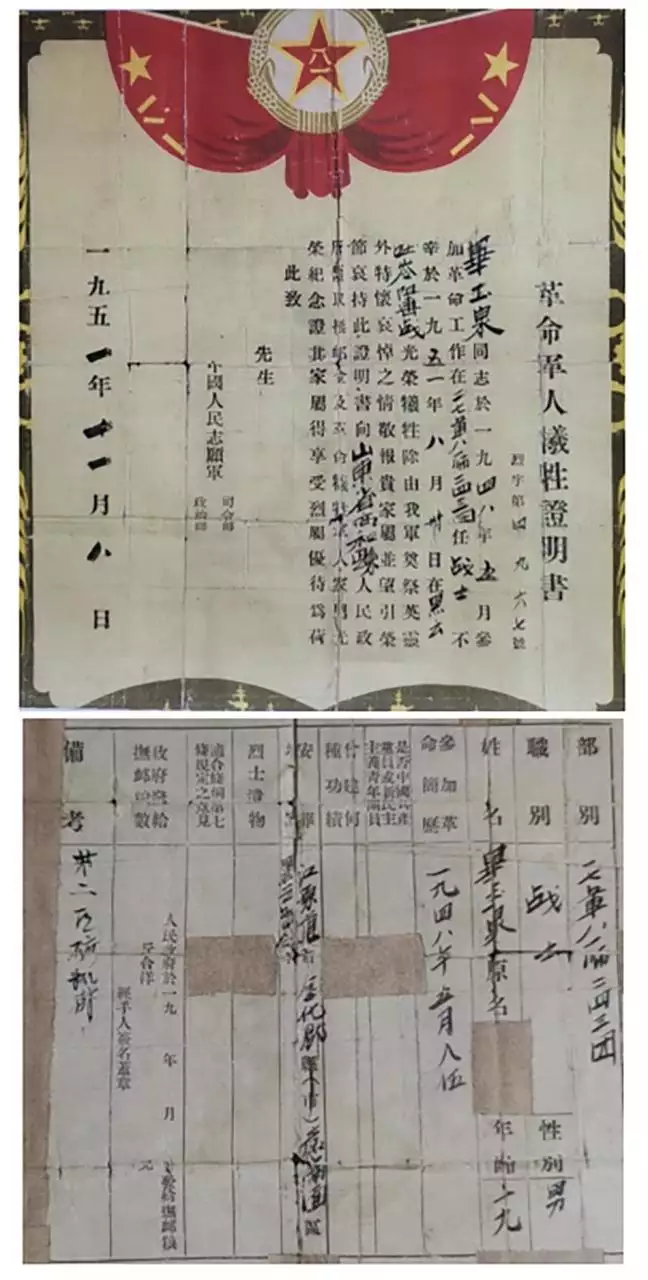 八一
八一
八一
革命軍人犧牲證明書
烈字第四九六七號
畢玉泉同志於一九四八年五月參
加革命工作在二七軍八一師二四三團任战士不
幸於一九五一年八月卅日在黑云
吐岺阻击战光榮犧牲除由我軍奠祭英靈
外特懷哀悼之情敬報貴家屬並望引榮
節哀持此證明書向山東省 縣人民政
府領取撫卹金及革命犧牲軍人家屬光
榮紀念證其家屬得享受烈屬優待為荷
此致
先生
中國人民志願軍
司令部
政治部
一九五一年十一月八日
部別
二七軍八一師二四三团
職別
战士
性別
男
姓名
畢玉泉
原名
年齡
十九
參加革命簡歷
一九四八年五月入伍
是否中國共產黨員或新民主主義青年團員
曾建何種功績
安葬
江原道 金化郡 縣(市) 區
烈士遺物
適合條例第七條規定之意見
政府發給撫卹 數
人民政府於一九 年 月 日發給撫卹糧
斤合洋 元
經手人簽名蓋章
備考